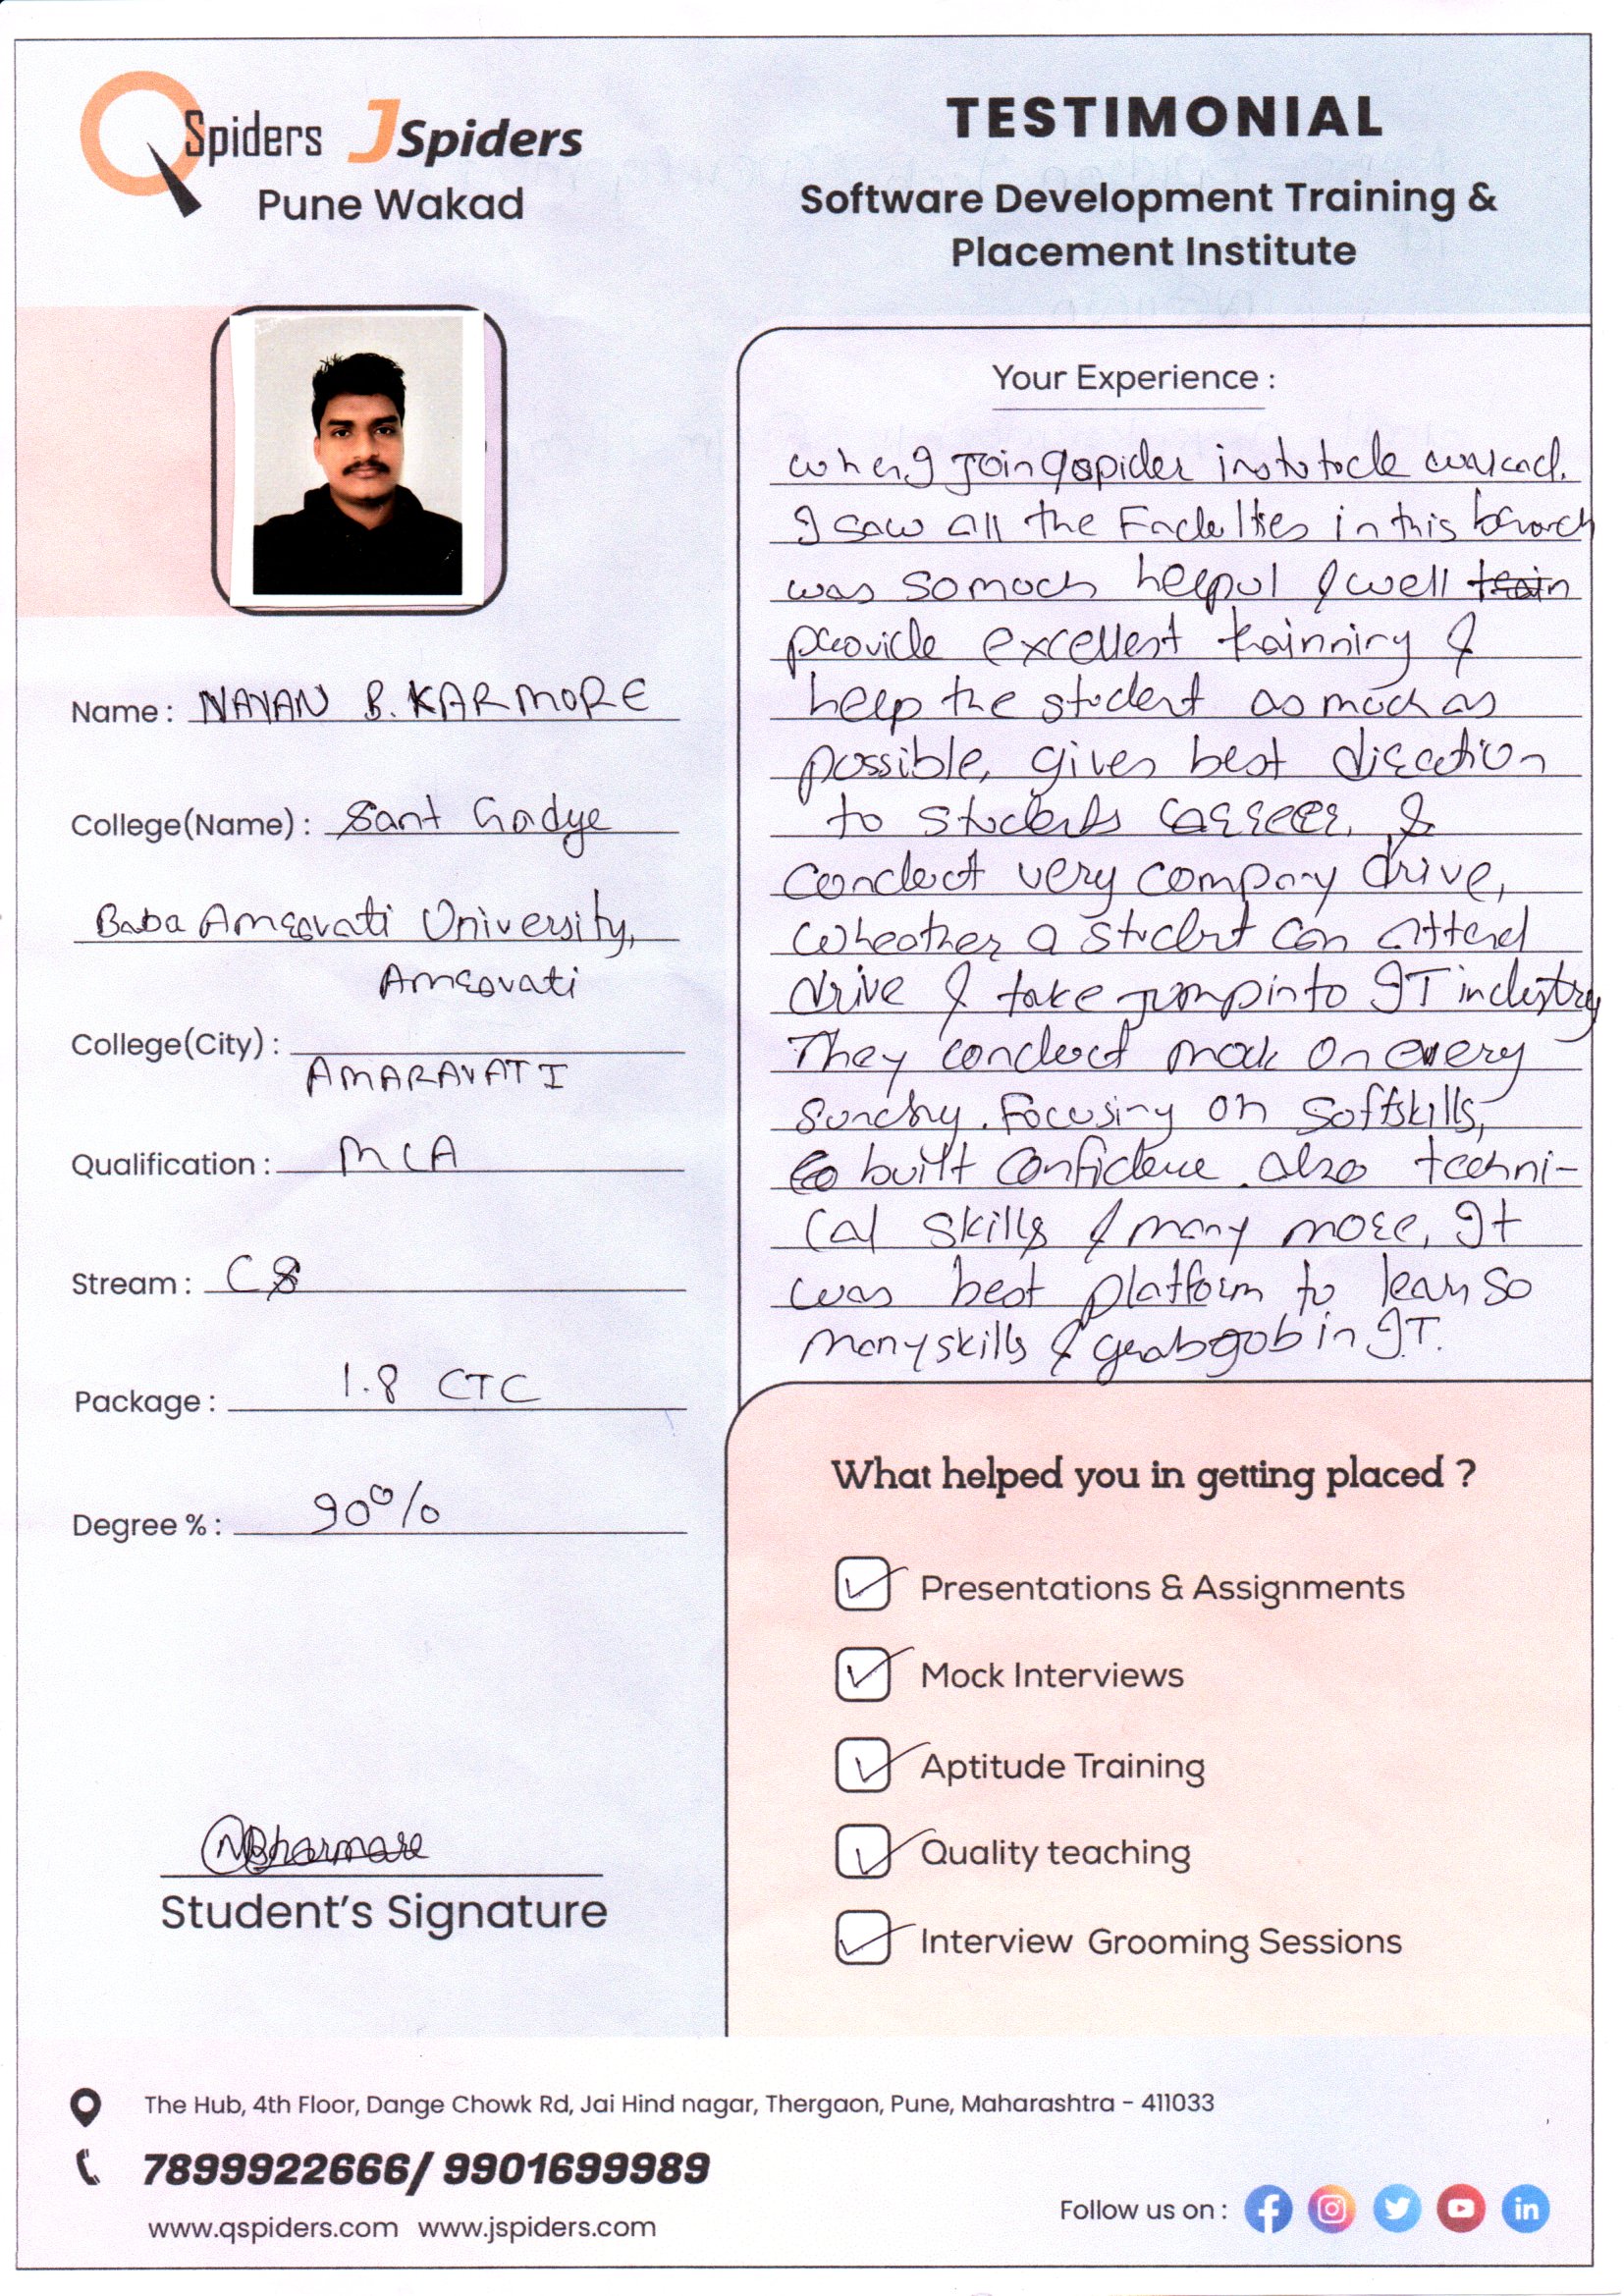 QSpiders JSpiders
Pune Wakad
TESTIMONIAL
Software Development Training &
Placement Institute
Name : NAYAN B. KARMORE
College(Name) : Sant Gadge
Baba Amravati University,
Amravati
College(City) :
AMARAVATI
Qualification : MCA
Stream : CS
Package : 1.8 CTC
Degree % : 90%
Student's Signature
Your Experience :
when I Join Qspider institute wakad.
I saw all the Faculties in this branch
was so much helpul & well train
provide excellent trainning &
help the student as much as
possible, gives best direction
to students carreer, &
conduct very company drive,
wheather a student can attend
drive & take jump into IT industry
They conduct mock on every
Sunday. Focusing on softskills,
to built confidence. also techni-
cal skills & many more, It
was best platform to learn so
many skills & grab job in I.T.
What helped you in getting placed ?
✓ Presentations & Assignments
✓ Mock Interviews
✓ Aptitude Training
✓ Quality teaching
✓ Interview Grooming Sessions
The Hub, 4th Floor, Dange Chowk Rd, Jai Hind nagar, Thergaon, Pune, Maharashtra - 411033
7899922666/ 9901699989
www.qspiders.com www.jspiders.com
Follow us on :